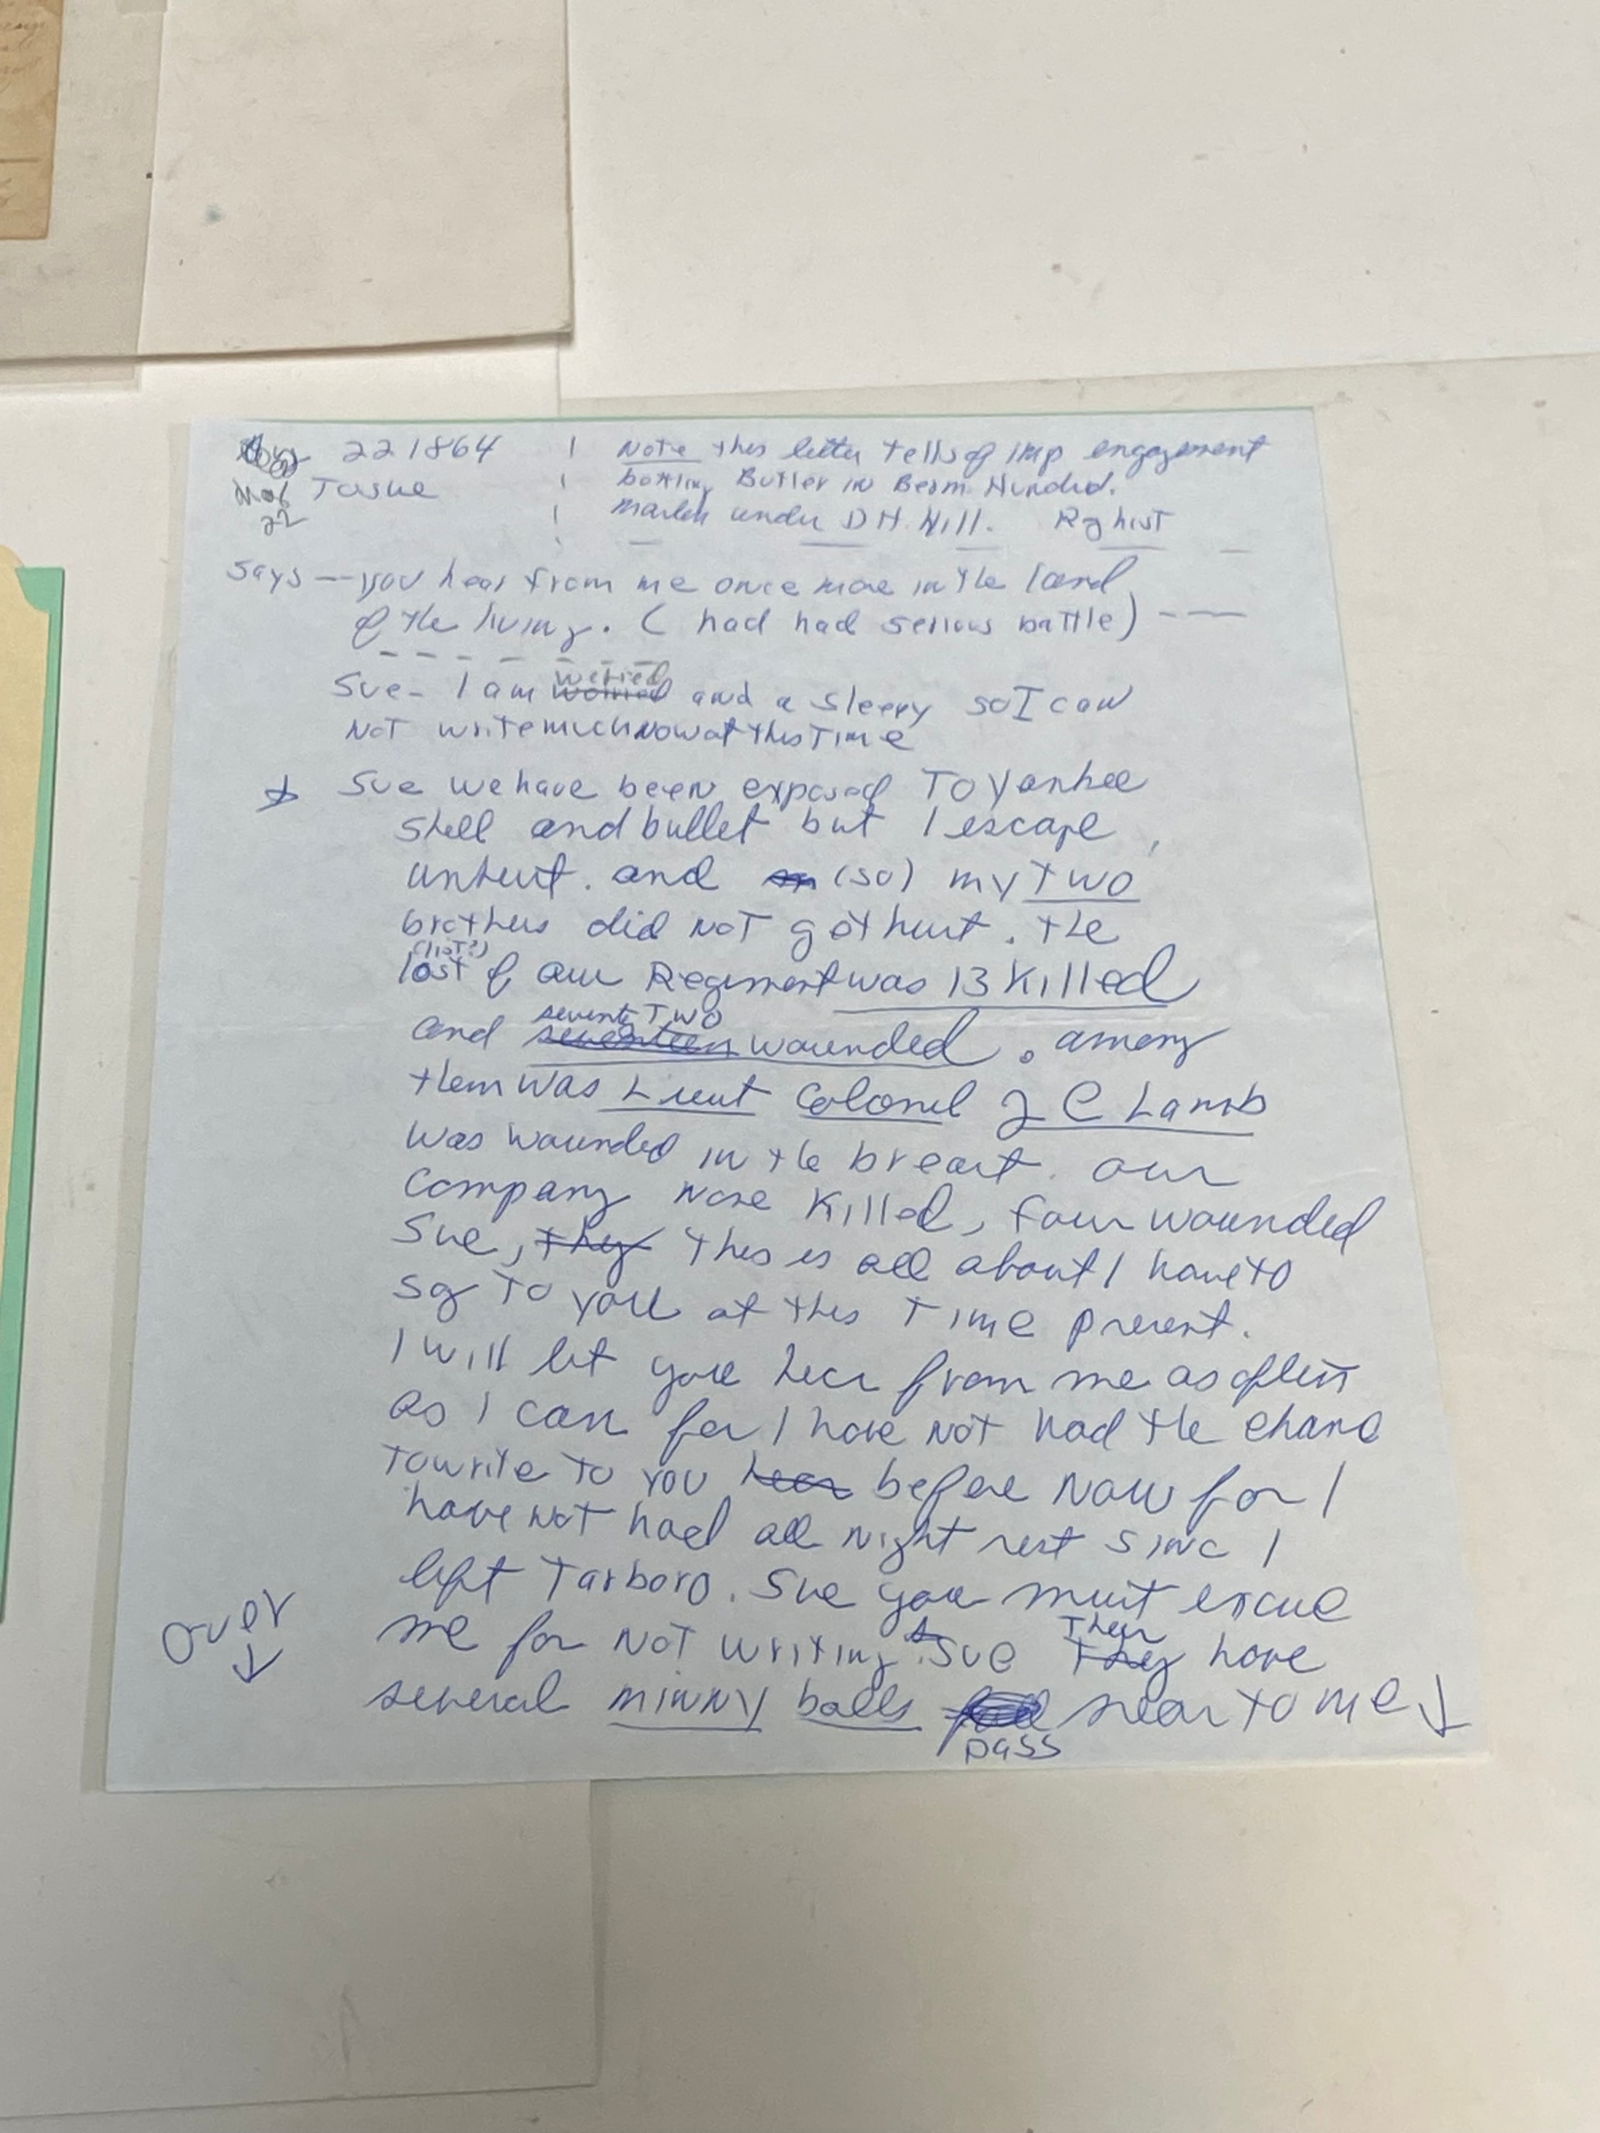 22 1864 Note this letter tells of imp engagement
May To Sue bottling Butler in Berm. Hundred.
22 under D H. Hill. Rg hist
says — you hear from me once more in the land
of the living. ( had had serious battle) — —
Sue - I am weried worried and a sleepy so I can
Not write much now at this Time
Sue we have been exposed To Yankee
shell and bullet but I escape,
unhurt. and (so) my two
brothers did NOT got hurt. the
(list?)
lost of our Regiment was 13 Killed
seventy TWO
and seventeen wounded. among
them was Lieut Colonel J C Lamb
was wounded in the breast. our
Company None Killed, four wounded
Sue, they this is all about I have to
say To you at this Time present.
I will let you hear from me as often
as I can for I have NOT had the chanc
To write To you hear before Now for I
have NOT had all night rest sinc I
left Tarboro. Sue you must excue
Over me for NOT writing. Sue Their They have
several minny balls near to me
pass